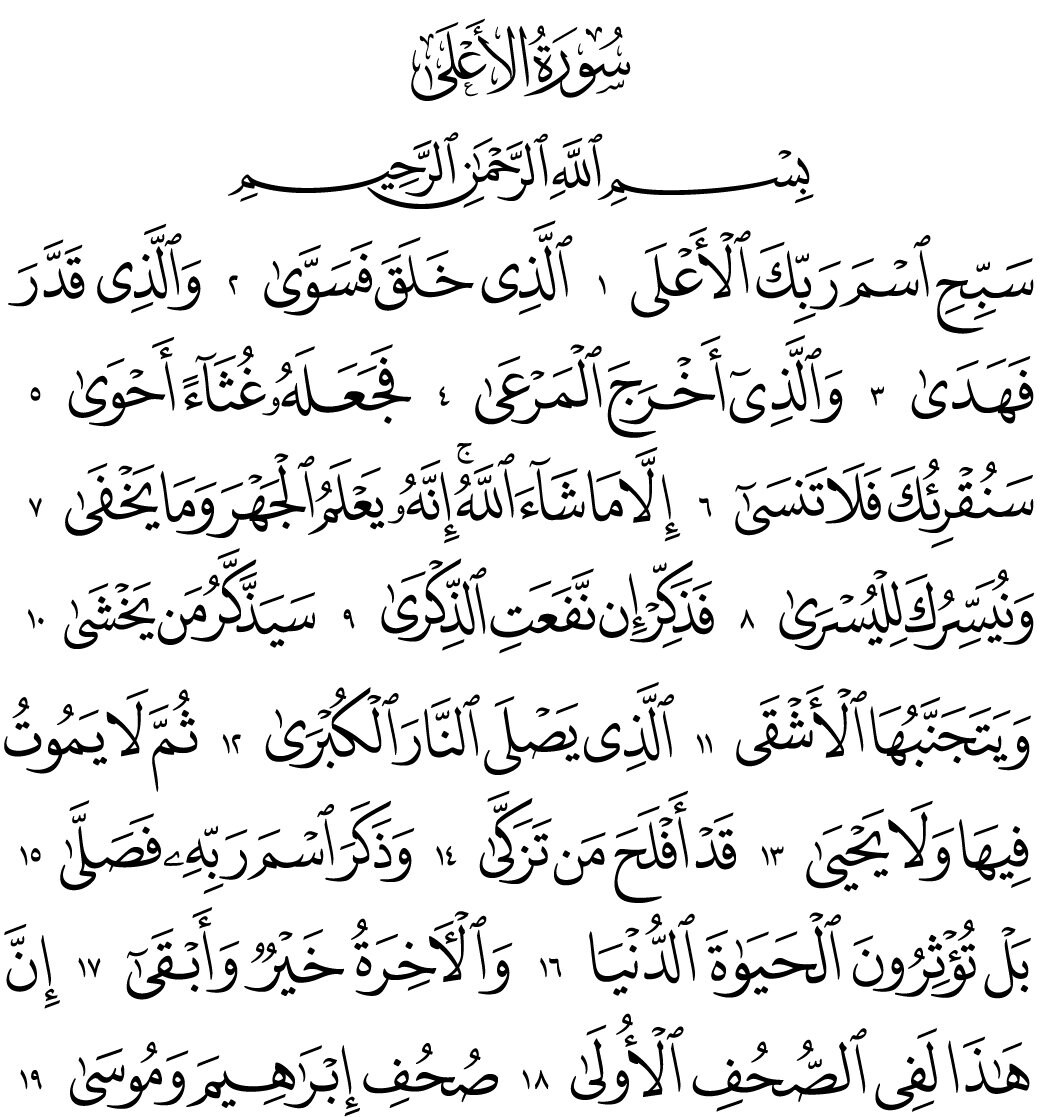 سُورَةُ الأَعْلَىٰ
بِسْمِ ٱللَّهِ ٱلرَّحْمَٰنِ ٱلرَّحِيمِ
سَبِّحِ ٱسْمَ رَبِّكَ ٱلْأَعْلَى ١ ٱلَّذِى خَلَقَ فَسَوَّىٰ ٢ وَٱلَّذِى قَدَّرَ
فَهَدَىٰ ٣ وَٱلَّذِىٓ أَخْرَجَ ٱلْمَرْعَىٰ ٤ فَجَعَلَهُۥ غُثَآءً أَحْوَىٰ ٥
سَنُقْرِئُكَ فَلَا تَنسَىٰٓ ٦ إِلَّا مَا شَآءَ ٱللَّهُ ۚ إِنَّهُۥ يَعْلَمُ ٱلْجَهْرَ وَمَا يَخْفَىٰ ٧
وَنُيَسِّرُكَ لِلْيُسْرَىٰ ٨ فَذَكِّرْ إِن نَّفَعَتِ ٱلذِّكْرَىٰ ٩ سَيَذَّكَّرُ مَن يَخْشَىٰ ١٠
وَيَتَجَنَّبُهَا ٱلْأَشْقَى ١١ ٱلَّذِى يَصْلَى ٱلنَّارَ ٱلْكُبْرَىٰ ١٢ ثُمَّ لَا يَمُوتُ
فِيهَا وَلَا يَحْيَىٰ ١٣ قَدْ أَفْلَحَ مَن تَزَكَّىٰ ١٤ وَذَكَرَ ٱسْمَ رَبِّهِۦ فَصَلَّىٰ ١٥
بَلْ تُؤْثِرُونَ ٱلْحَيَوٰةَ ٱلدُّنْيَا ١٦ وَٱلْـَٔاخِرَةُ خَيْرٌ وَأَبْقَىٰٓ ١٧ إِنَّ
هَٰذَا لَفِى ٱلصُّحُفِ ٱلْأُولَىٰ ١٨ صُحُفِ إِبْرَٰهِيمَ وَمُوسَىٰ ١٩